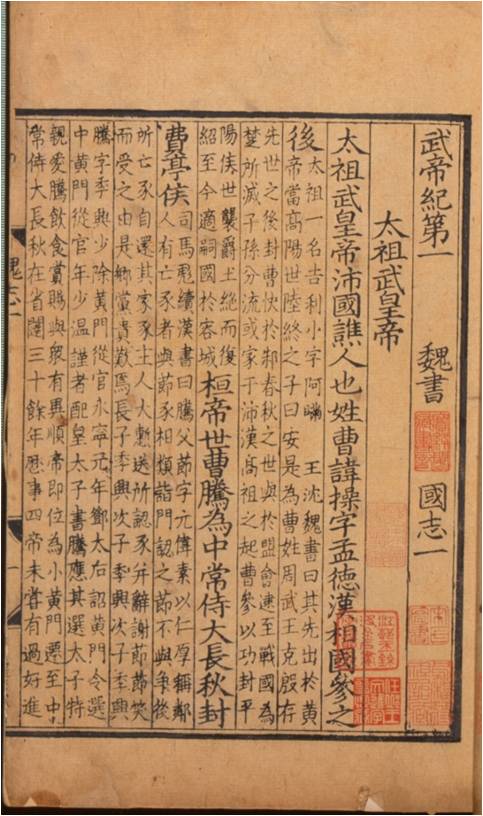 武帝紀第一 魏書 國志一
太祖武皇帝
太祖武皇帝沛國譙人也姓曹諱操字孟德漢相國參之
後
太祖一名吉利小字阿瞞 王沈魏書曰其先出於黃
帝當高陽世陸終之子曰安是為曹姓周武王克殷存
先世之後封曹俠於邾春秋之世與於盟會逮至戰國為
楚所滅子孫分流或家于沛漢高祖之起曹參以功封平
陽侯世襲爵土絕而復
紹至今適嗣國於容城
桓帝世曹騰為中常侍大長秋封
費亭侯
司馬彪續漢書曰騰父節字元偉素以仁厚稱鄰
人有亡豕者與節豕相類詣門認之節不與爭後
所亡豕自還其家豕主人大慙送所認豕并辭謝節節笑
而受之由是鄉黨貴歎焉長子季興次子季興次子季興
騰字季興少除黃門從官永寧元年鄧太后詔黃門令選
中黃門從官年少溫謹者配皇太子書騰應其選太子特
親愛騰飲食賞賜與眾有異順帝即位為小黃門遷至中
常侍大長秋在省闥三十餘年歷事四帝未嘗有過好進
魏志一